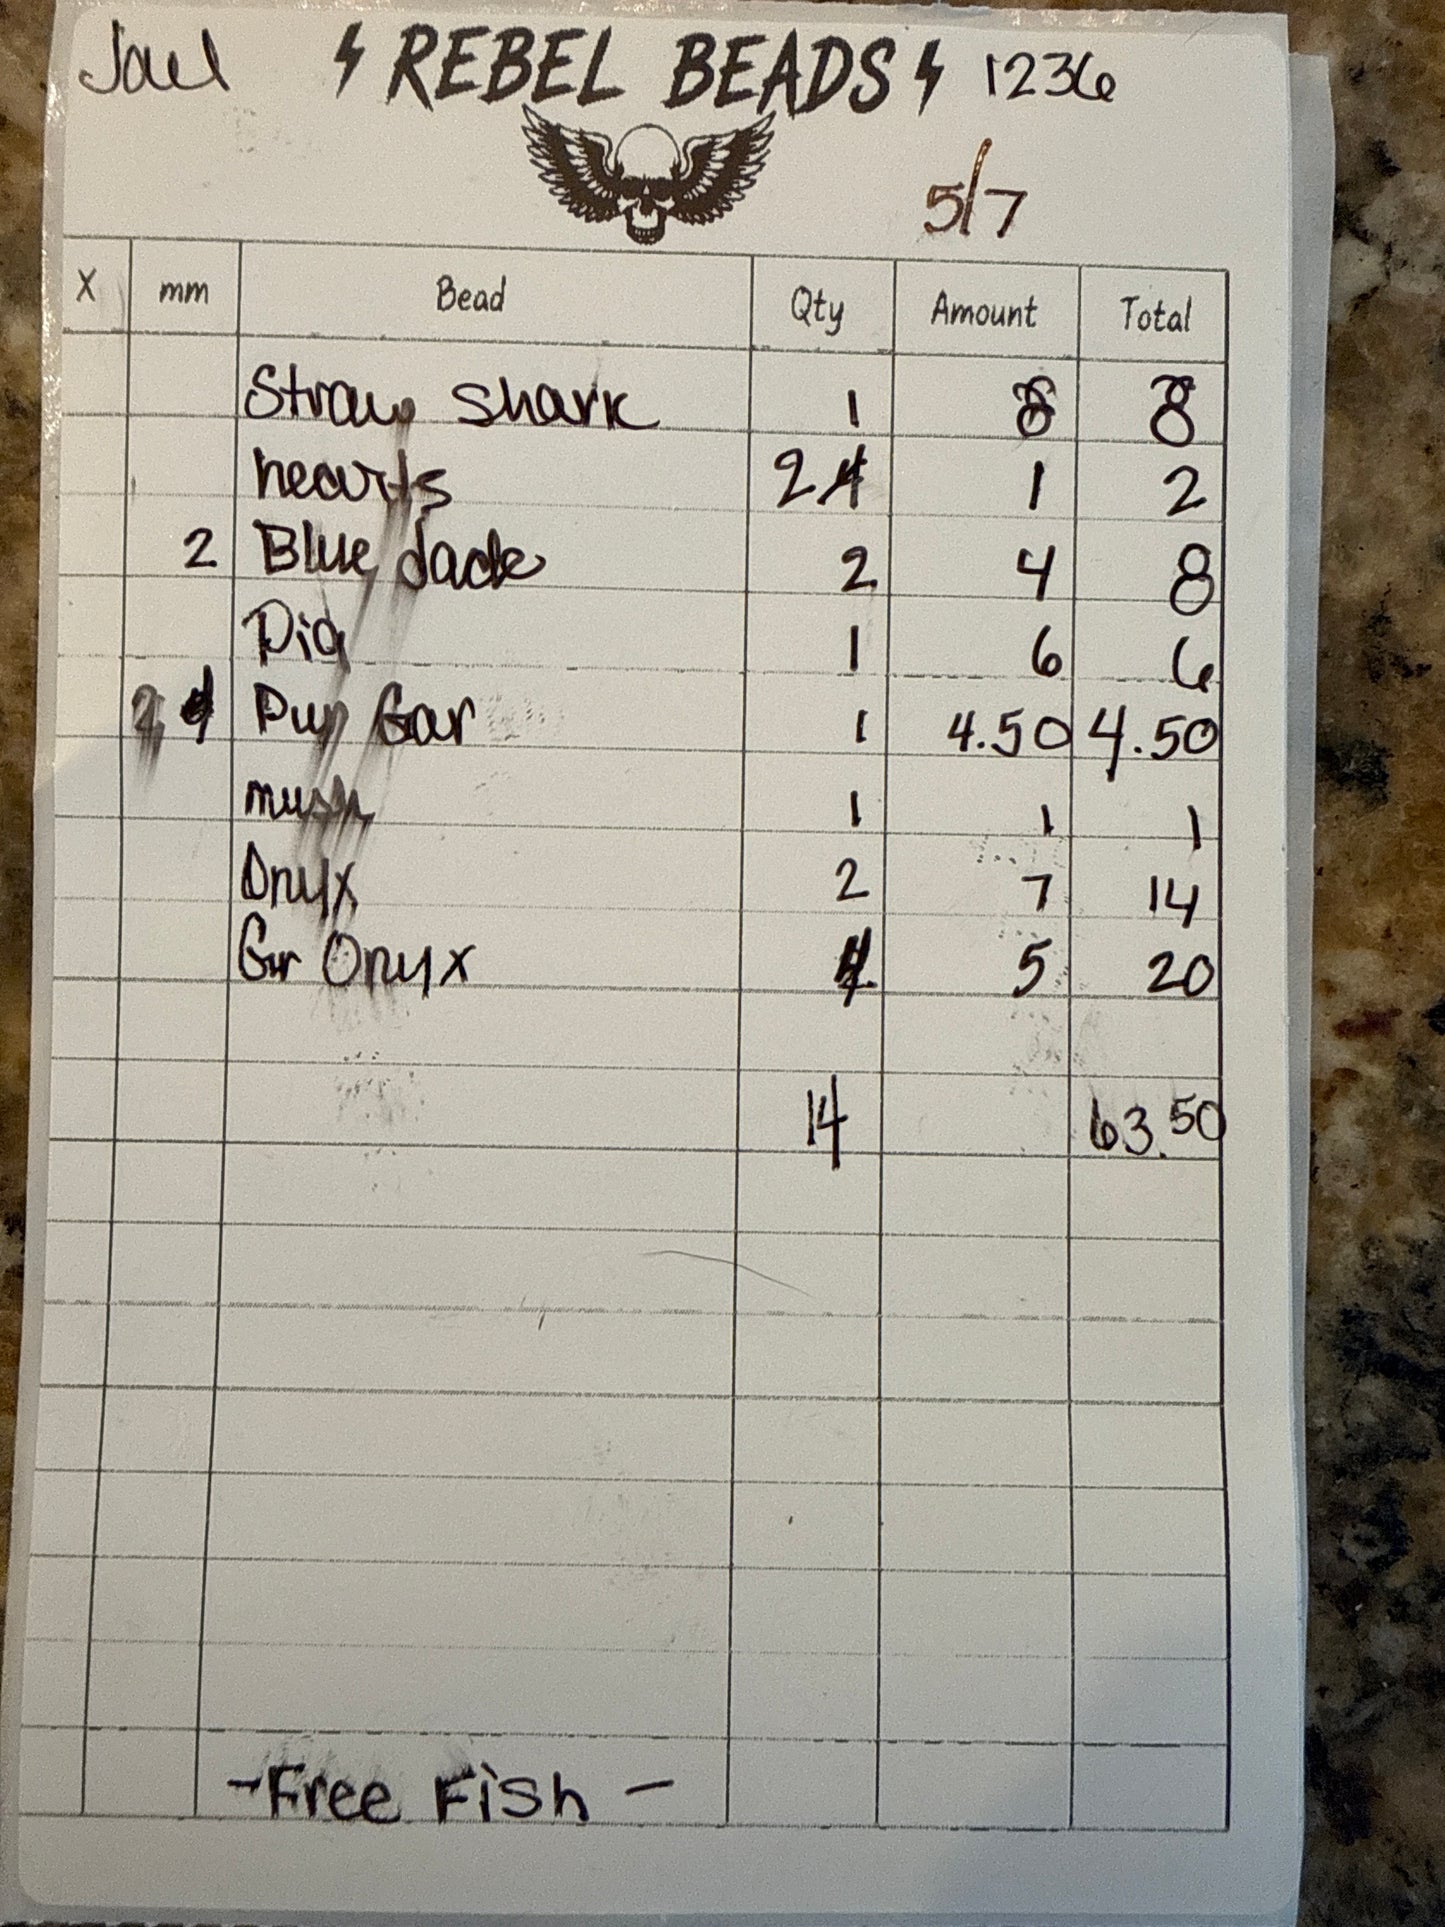 Jael REBEL BEADS 1236
5/7
X mm Bead Qty Amount Total
Straw Shark 1 8 8
hearts 2 1 2
2 Blue Jade 2 4 8
Pig 1 6 6
Pur Gar 1 4.50 4.50
mush 1 1 1
Onyx 2 7 14
Gr Onyx 4 5 20
14 63.50
-Free Fish-